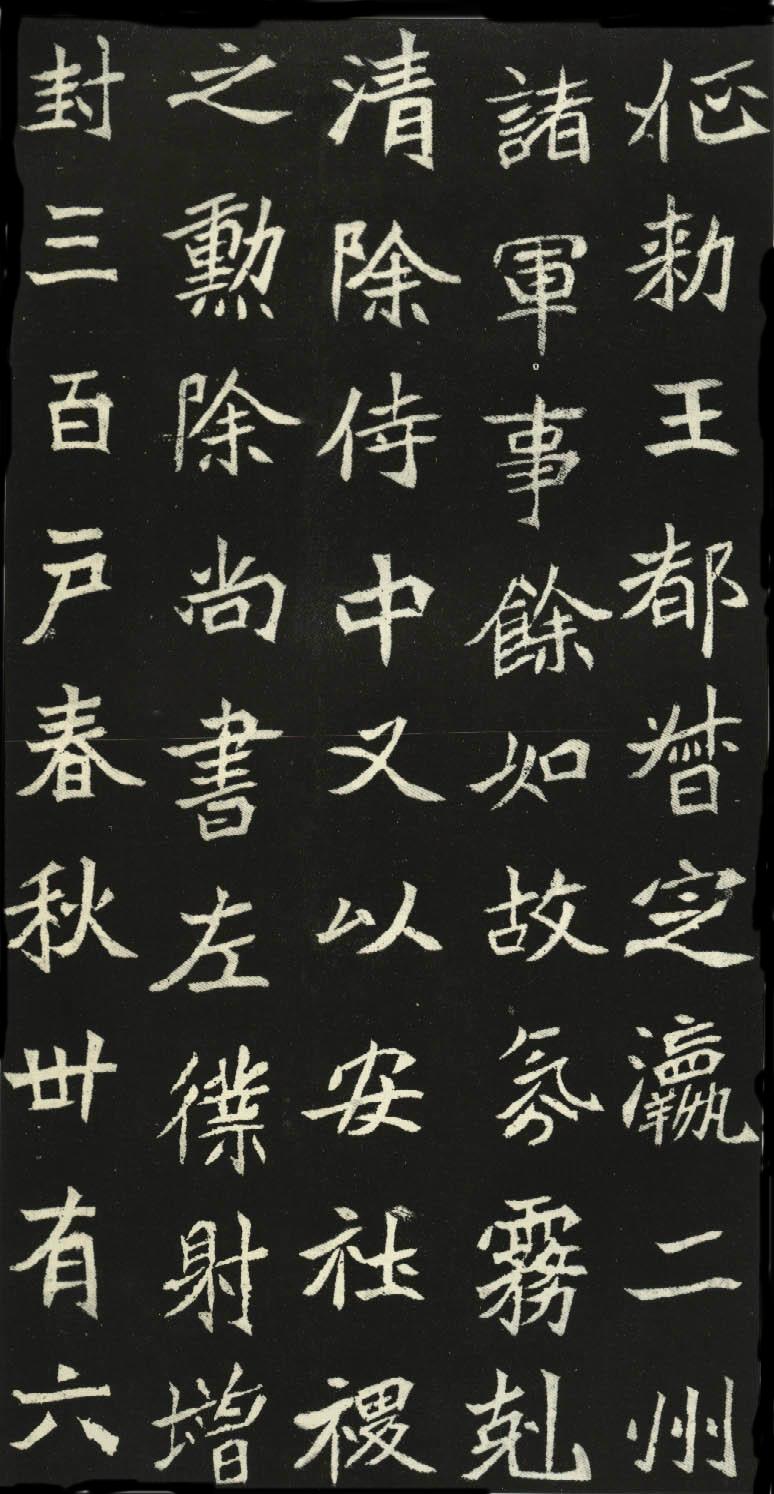 勑王都督定瀛二州
諸軍事餘如故氛霧剋
清除侍中又以安社禝
之勳除尚書左僕射增
封三百戶春秋卅有六